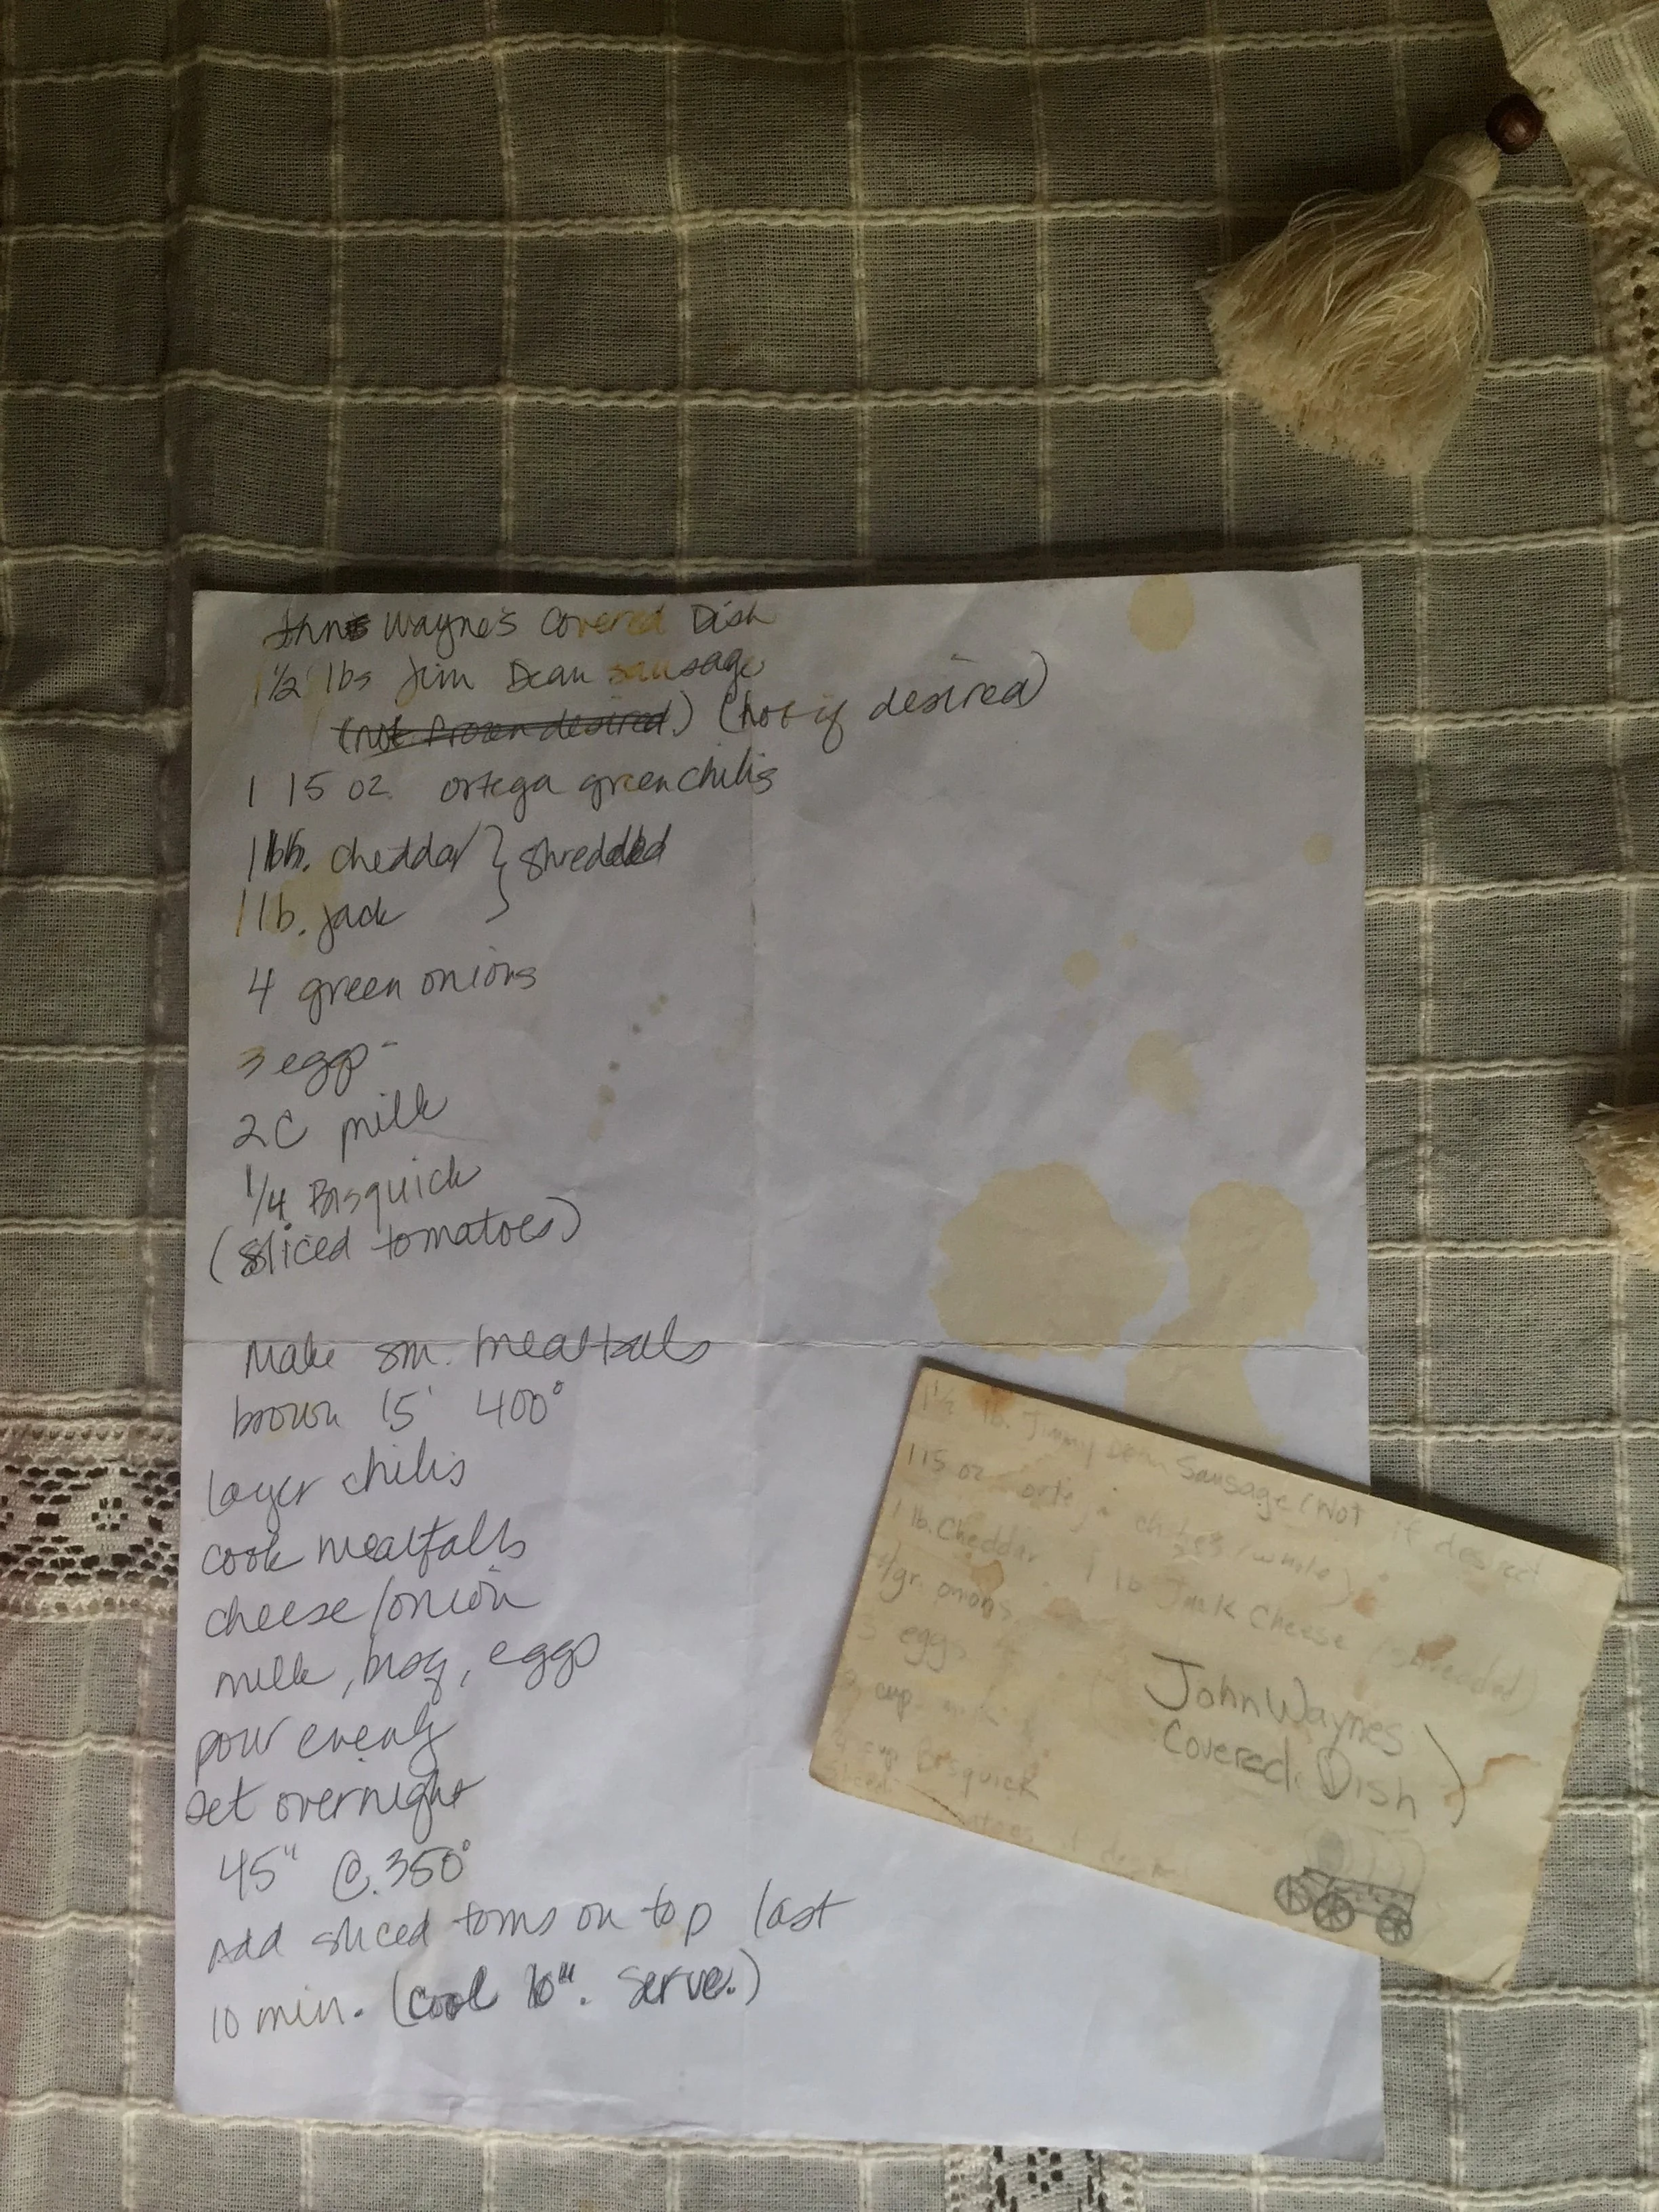 John Wayne's Covered Dish
1½ lbs Jim Dean sausage
(not frozen desired.) (hot if desired)
1 15 oz. ortega green chilis
1 lb. cheddar } shredded
1 lb. jack
4 green onions
3 eggs
2C milk
1/4 Bisquick
(sliced tomatoes)
Make sm. meatballs
brown 15' 400°
layer chilis
cook meatballs
cheese/onion
milk, bisq, eggs
pour evenly
set overnight
45" @ 350°
Add sliced toms on top last
10 min. (cool 10". serve.)
1½ lb. Jimmy Dean Sausage (Hot if desired
1 15 oz ortega chiles (whole)
1 lb. Cheddar 1 lb Jack Cheese (shredded)
4 gr. onions
3 eggs
cup milk
1/4 cup Bisquick
Sliced if
John Waynes
Covered Dish